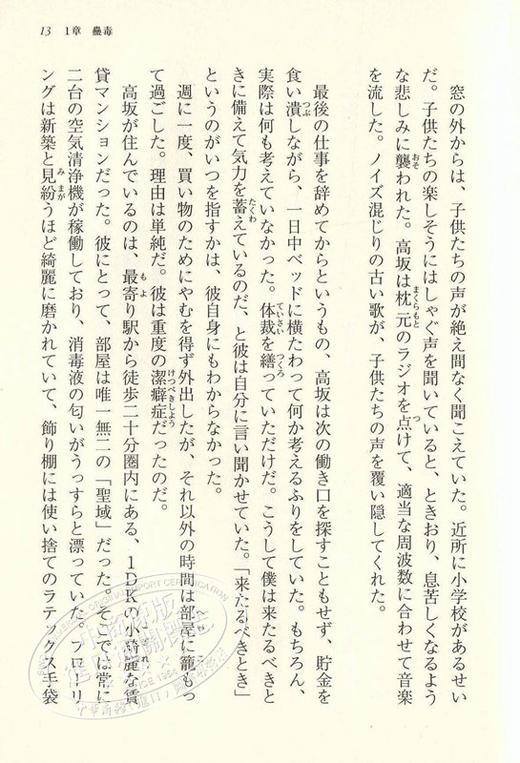 13　1章　蠱毒
窓の外からは、子供たちの声が絶え間なく聞こえていた。近所に小学校があるせい
だ。子供たちの楽しそうにはしゃぐ声を聞いていると、ときおり、息苦しくなるよう
な悲しみに襲われた。高坂は枕元のラジオを点けて、適当な周波数に合わせて音楽
を流した。ノイズ混じりの古い歌が、子供たちの声を覆い隠してくれた。
最後の仕事を辞めてからというもの、高坂は次の働き口を探すこともせず、貯金を
食い潰しながら、一日中ベッドに横たわって何か考えるふりをしていた。もちろん、
実際は何も考えていなかった。体裁を繕っていただけだ。こうして僕は来たるべきと
きに備えて気力を蓄えているのだ、と彼は自分に言い聞かせていた。「来たるべきとき」
というのがいつを指すかは、彼自身にもわからなかった。
週に一度、買い物のためにやむを得ず外出したが、それ以外の時間は部屋に籠もっ
て過ごした。理由は単純だ。彼は重度の潔癖症だったのだ。
高坂が住んでいるのは、最寄り駅から徒歩二十分圏内にある、1DKの小綺麗な賃
貸マンションだった。彼にとって、部屋は唯一無二の「聖域」だった。そこでは常に
二台の空気清浄機が稼働しており、消毒液の匂いがうっすらと漂っていた。フローリ
ングは新築と見紛うほど綺麗に磨かれていて、飾り棚には使い捨てのラテックス手袋